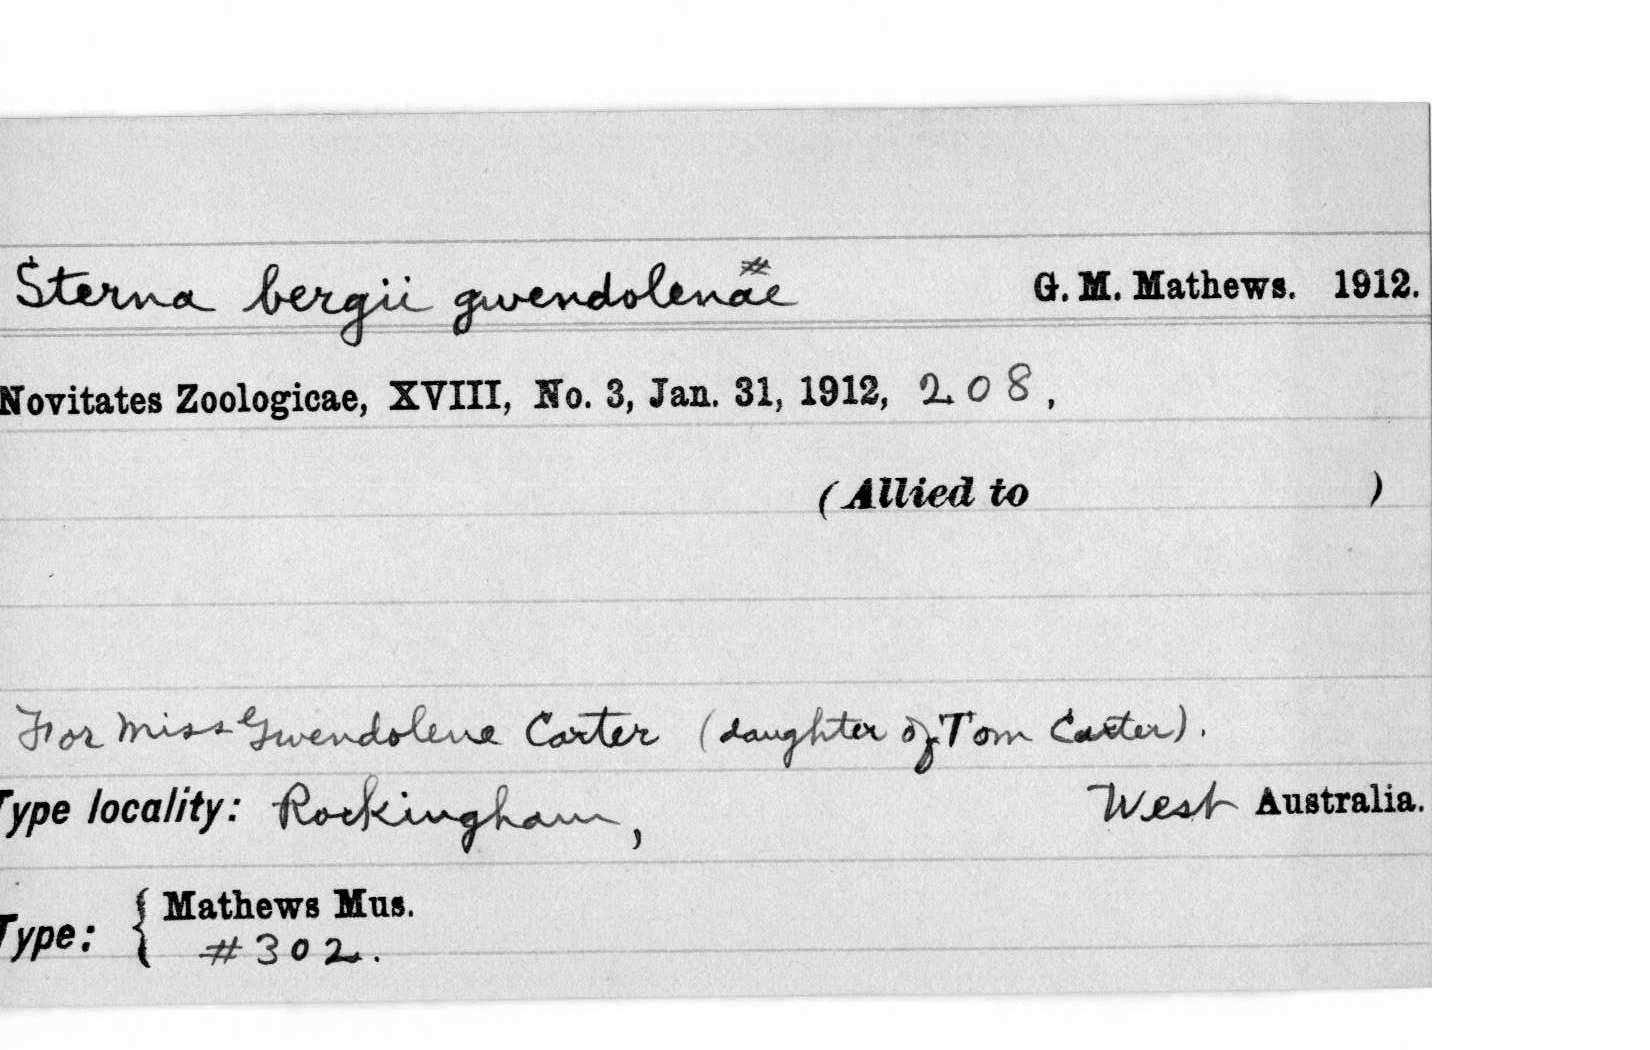 Sterna bergii gwendolenae # G. M. Mathews. 1912.
Novitates Zoologicae, XVIII, No. 3, Jan. 31, 1912, 208,
(Allied to )
For Miss Gwendolene Carter (daughter of Tom Carter).
Type locality: Rockingham, West Australia.
Type: { Mathews Mus.
#302.